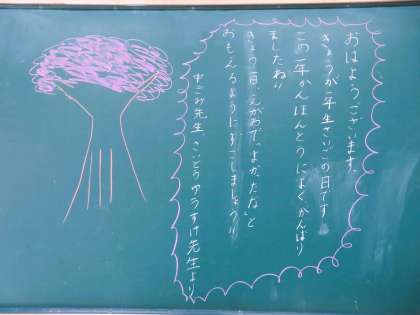 おはようございます。
きょうが一年生さいごの日です
この一年かんほんとうによくがんばり
ましたね!!
きょう一日、えがおで、"よかったな"と
おもえるようにすごしましょう!!
中ごみ先生 さいとうゆうすけ先生より